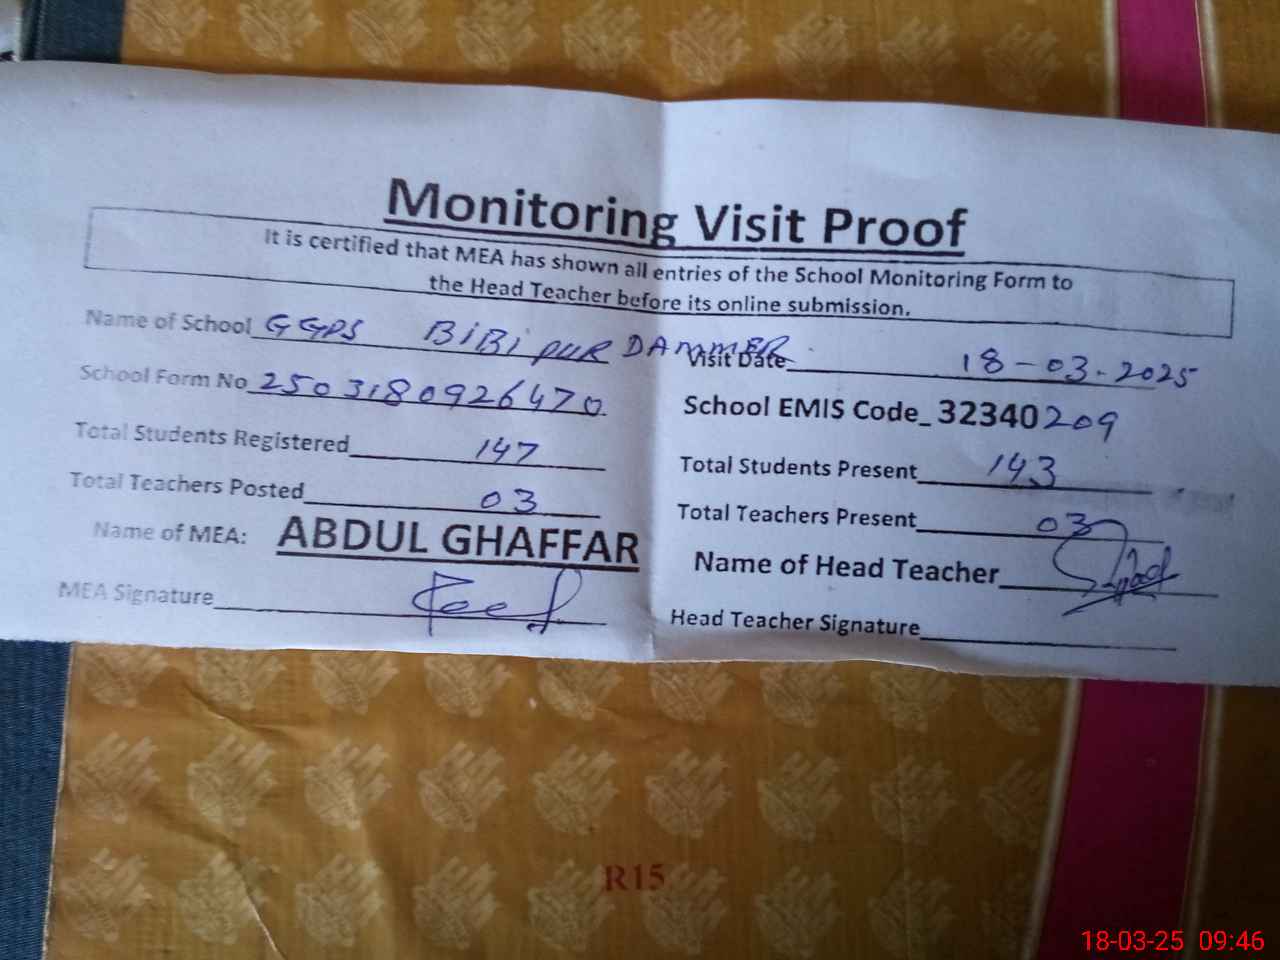 Monitoring Visit Proof
It is certified that MEA has shown all entries of the School Monitoring Form to
the Head Teacher before its online submission.
Name of School GGPS BiBi PUR DAMMER
Visit Date 18-03-2025
School Form No 2503180926470
School EMIS Code_ 32340209
Total Students Registered 147
Total Students Present 143
Total Teachers Posted 03
Total Teachers Present 03
Name of MEA: ABDUL GHAFFAR
Name of Head Teacher
MEA Signature
Head Teacher Signature
R15
18-03-25 09:46